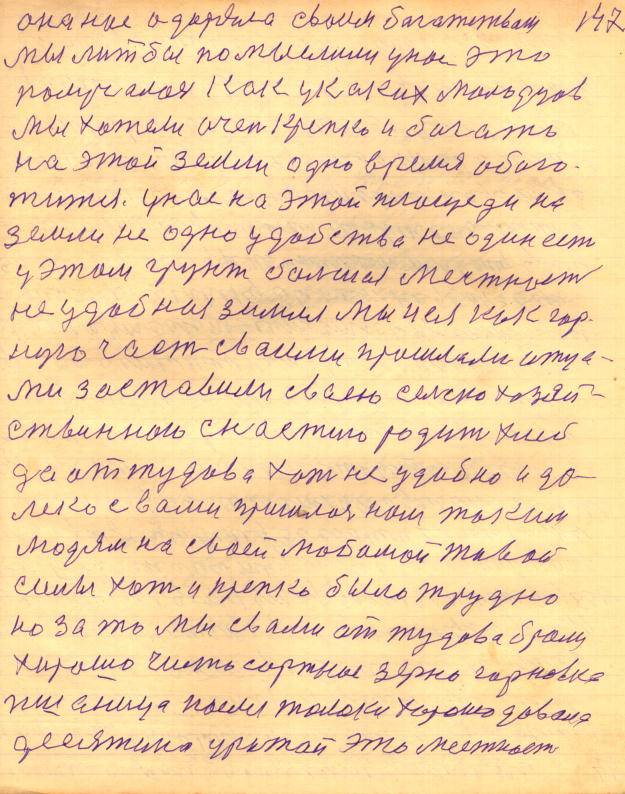 она нас одаряла своим багатством 147
мы литбы помыслили унас это
получалоя как укаких молодцов
мы хотели очен крепко и багать
на этой земли одно время обога-
тится. унас на этой площеди на
земли не одно удобства не один ест
у этом грунт большая местност
не удобная зимля мы нея как гор
ного част сваими прошлами отца-
ми заставили сваею селско хозяй-
ственною снастию родит хлеб
да от тудова хот не удобно и да-
леко свами пришлоя нам таким
людям на своей любамой тивой
силы хот и крепко было трудно
но за то мы свами от тудова брали
хорошо чисто сортное зерно гарновка
пшаница посли толоки хорошо давала
десятина урожай это местност